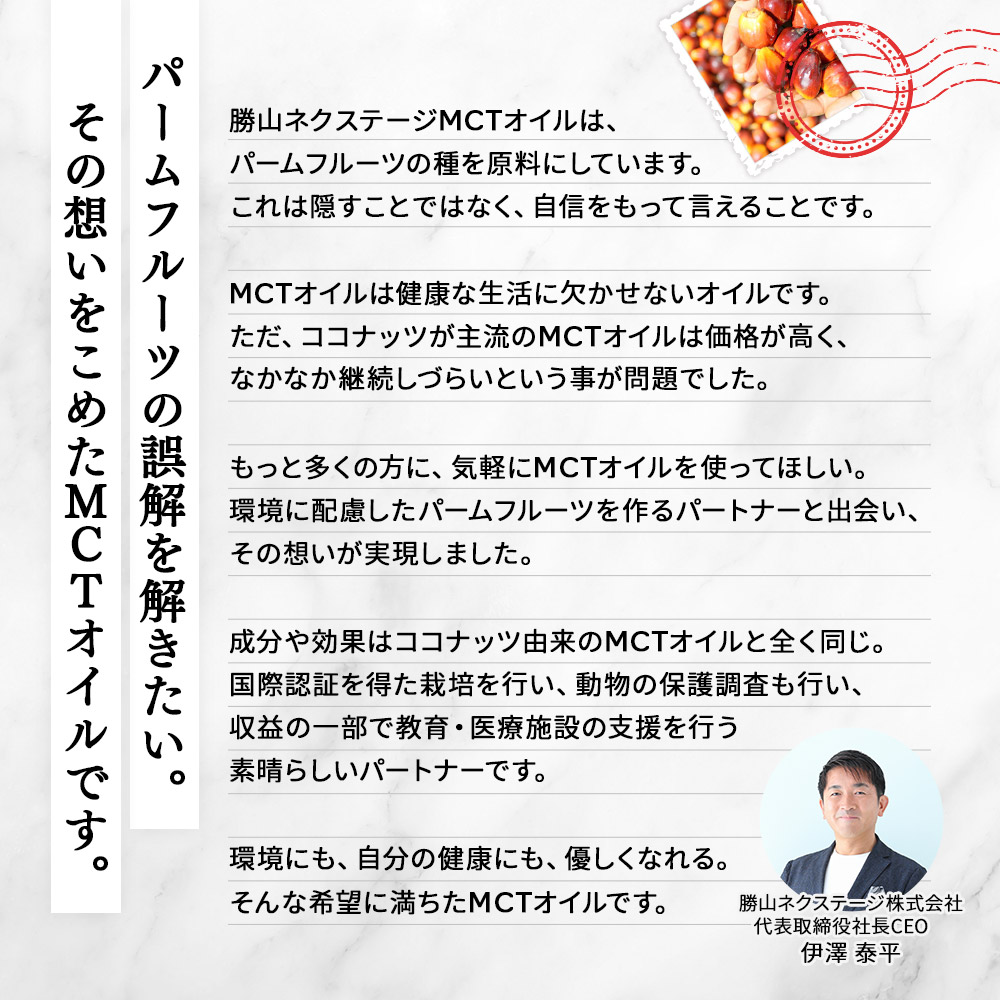 パームフルーツの誤解を解きたい。
その想いをこめたMCTオイルです。
勝山ネクステージMCTオイルは、
パームフルーツの種を原料にしています。
これは隠すことではなく、自信をもって言えることです。
MCTオイルは健康な生活に欠かせないオイルです。
ただ、ココナッツが主流のMCTオイルは価格が高く、
なかなか継続しづらいという事が問題でした。
もっと多くの方に、気軽にMCTオイルを使ってほしい。
環境に配慮したパームフルーツを作るパートナーと出会い、
その想いが実現しました。
成分や効果はココナッツ由来のMCTオイルと全く同じ。
国際認証を得た栽培を行い、動物の保護調査も行い、
収益の一部で教育・医療施設の支援を行う
素晴らしいパートナーです。
環境にも、自分の健康にも、優しくなれる。
そんな希望に満ちたMCTオイルです。
勝山ネクステージ株式会社
代表取締役社長CEO
伊澤 泰平